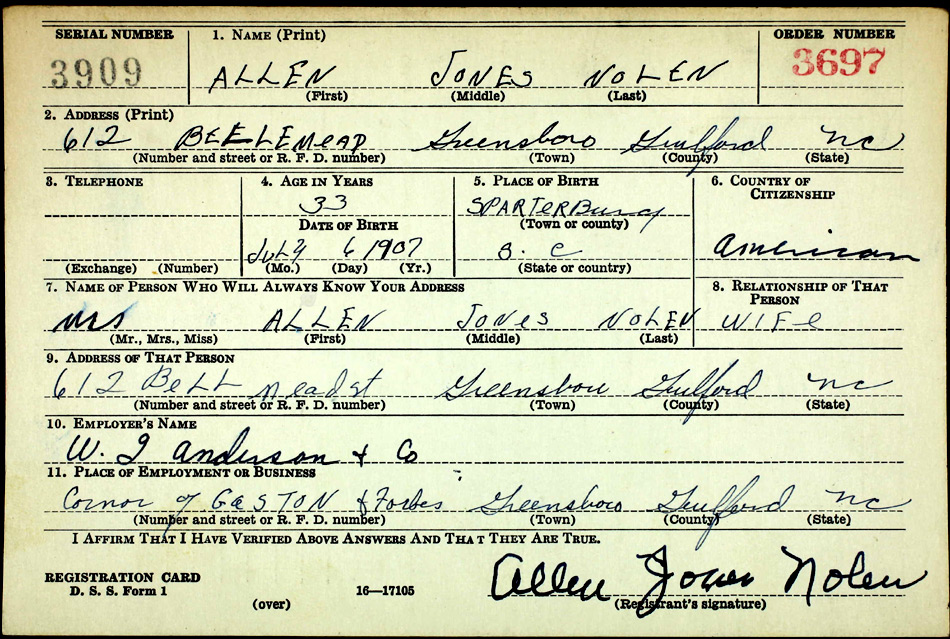 SERIAL NUMBER 1. NAME (Print) ORDER NUMBER
3909 ALLEN JONES NOLEN 3697
(First) (Middle) (Last)
2. ADDRESS (Print)
612 BELLEMEAD Greensboro Guilford NC
(Number and street or R. F. D. number) (Town) (County) (State)
3. TELEPHONE 4. AGE IN YEARS 5. PLACE OF BIRTH 6. COUNTRY OF CITIZENSHIP
33 SPARTERBurg
DATE OF BIRTH (Town or county)
July 6 1907 S. C American
(Exchange) (Number) (Mo.) (Day) (Yr.) (State or country)
7. NAME OF PERSON WHO WILL ALWAYS KNOW YOUR ADDRESS 8. RELATIONSHIP OF THAT PERSON
Mrs ALLEN JONES NOLEN WIFE
(Mr., Mrs., Miss) (First) (Middle) (Last)
9. ADDRESS OF THAT PERSON
612 BELL Mead st Greensboro Guilford NC
(Number and street or R. F. D. number) (Town) (County) (State)
10. EMPLOYER'S NAME
W. I Anderson + Co
11. PLACE OF EMPLOYMENT OR BUSINESS
Cornor of GASTON & Forbes Greensboro Guilford NC
(Number and street or R. F. D. number) (Town) (County) (State)
I AFFIRM THAT I HAVE VERIFIED ABOVE ANSWERS AND THAT THEY ARE TRUE.
REGISTRATION CARD Allen Jones Nolen
D. S. S. Form 1 16—17105 (Registrant's signature)
(over)